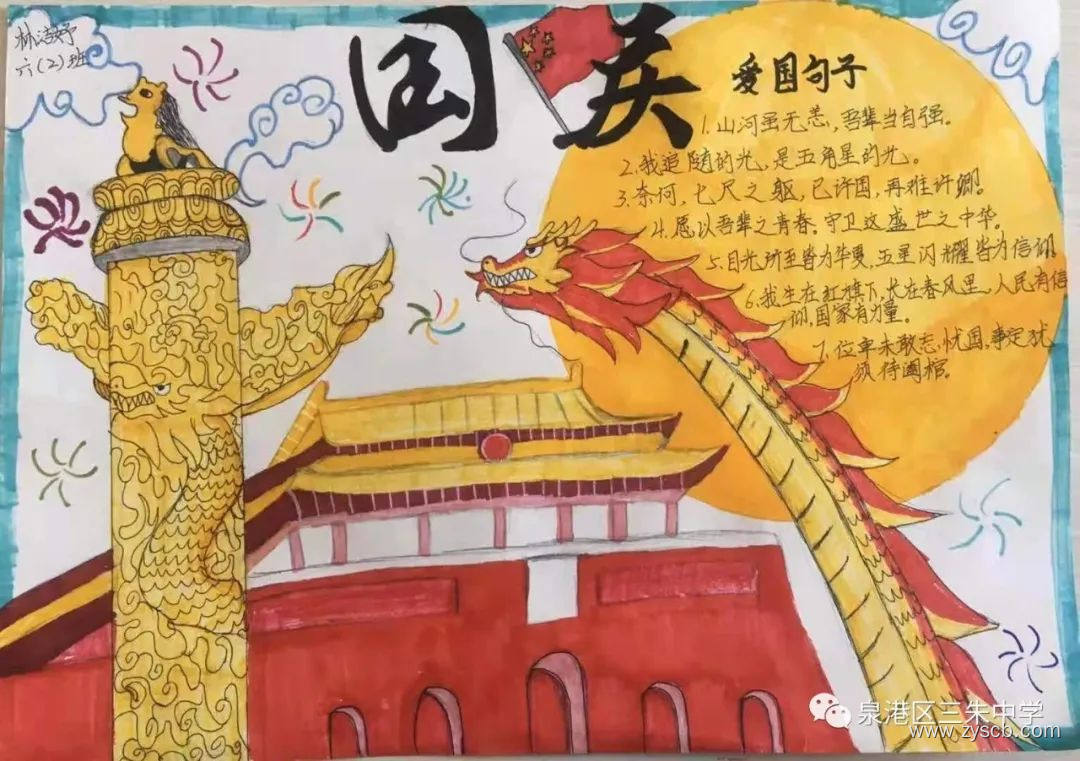 林洁妤
六(2)班
国
爱国句子
1.山河虽无恙,吾辈当自强。
2.我追随的光,是五角星的光。
3.奈何,七尺之躯,已许国,再难许卿。
4.愿以吾辈之青春,守卫这盛世之中华。
5.目光所至皆为华夏,五星闪耀皆为信仰
6.我生在红旗下,长在春风里,人民有信
仰,国家有力量。
7.位卑未敢忘,忧国,事定犹
须待阖棺。
泉港区三朱中学
www.zyscb.com